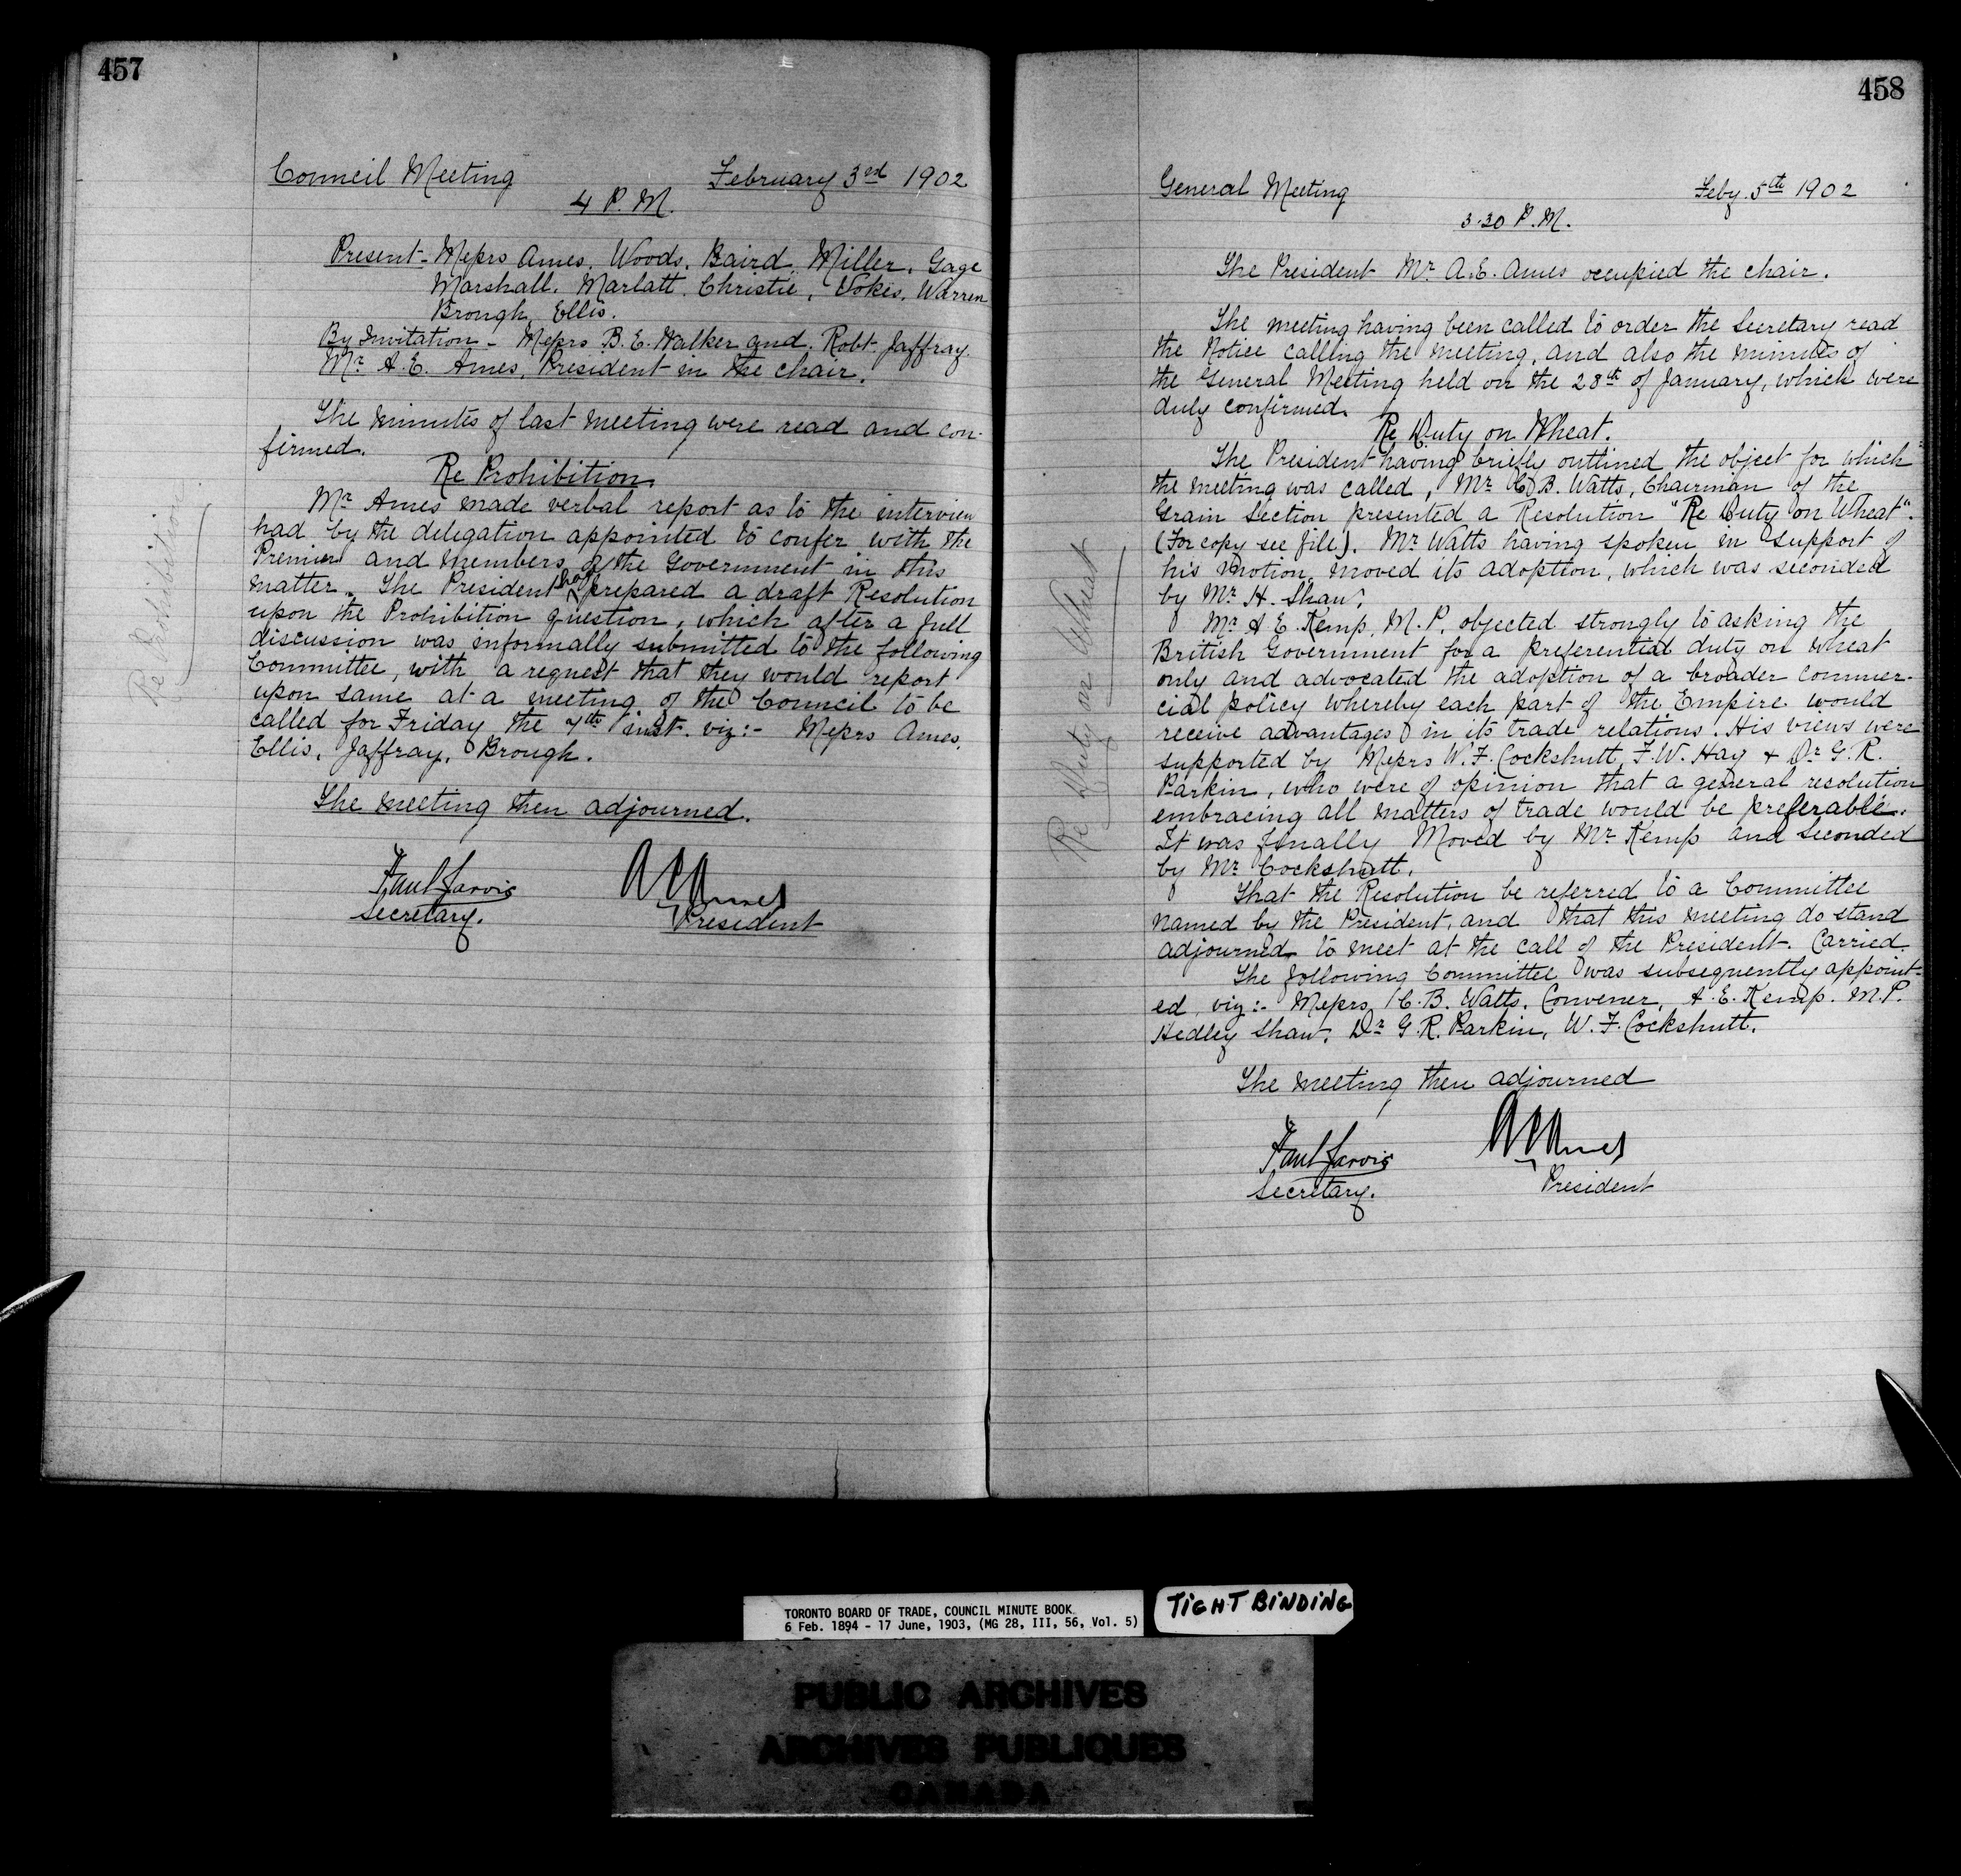 457
Council Meeting February 3rd 1902
4 P.M.
Present - Messrs Ames, Woods, Baird, Miller, Gage
Marshall, Marlatt, Christie, Vokes, Warren
Brough, Ellis.
By Invitation - Messrs B.E. Walker and Robt. Jaffray.
Mr A.E. Ames, President in the chair.
The minutes of last meeting were read and con-
firmed.
Re Prohibition.
Re Prohibition.
Mr Ames made verbal report as to the interview
had by the delegation appointed to confer with the
Premier and members of the Government in this
matter. The President had prepared a draft Resolution
upon the Prohibition question, which after a full
discussion was informally submitted to the following
Committee, with a request that they would report
upon same at a meeting of the Council to be
called for Friday the 7th inst. viz:- Messrs Ames,
Ellis, Jaffray, Brough.
The meeting then adjourned.
Paul Jarvis
Secretary.
A E Ames
President
458
General Meeting Feby. 5th 1902
3.30 P.M.
The President Mr A.E. Ames occupied the chair.
The meeting having been called to order the Secretary read
the Notice calling the meeting, and also the minutes of
the General Meeting held on the 28th of January, which were
duly confirmed.
Re Duty on Wheat.
Re Duty on Wheat
The President having briefly outlined the object for which
the meeting was called, Mr C.B. Watts, Chairman of the
Grain Section presented a Resolution "Re Duty on Wheat".
(For copy see file). Mr Watts having spoken in support of
his motion, moved its adoption, which was seconded
by Mr H. Shaw.
Mr A E. Kemp, M.P. objected strongly to asking the
British Government for a preferential duty on wheat
only and advocated the adoption of a broader commer-
cial policy whereby each part of the Empire would
receive advantages in its trade relations. His views were
supported by Messrs W.F. Cockshutt, F.W. Hay & Dr G.R.
Parkin, who were of opinion that a general resolution
embracing all matters of trade would be preferable.
It was finally Moved by Mr Kemp and Seconded
by Mr Cockshutt.
That the Resolution be referred to a Committee
named by the President, and that this meeting do stand
adjourned to meet at the call of the President. Carried.
The following Committee was subsequently appoint-
ed, viz:- Messrs C.B. Watts, Convener, A.E. Kemp. M.P.
Hedley Shaw, Dr G.R. Parkin, W.F. Cockshutt.
The meeting then adjourned
Paul Jarvis
Secretary.
A E Ames
President
TORONTO BOARD OF TRADE, COUNCIL MINUTE BOOK
6 Feb. 1894 - 17 June, 1903, (MG 28, III, 56, Vol. 5)
TIGHT BINDING
PUBLIC ARCHIVES
ARCHIVES PUBLIQUES
CANADA